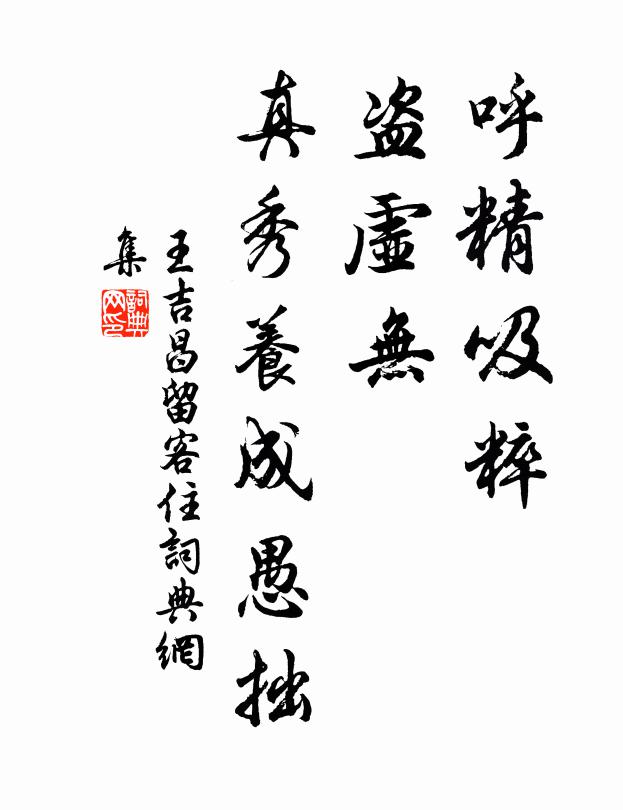 呼精吸粹
盗虛無
真秀養成愚拙
王吉昌留客住詞典網
集
詞典
网印